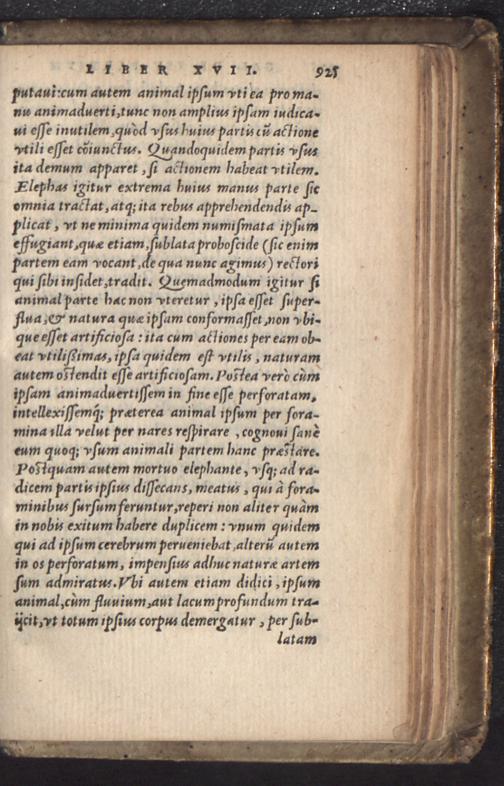 LIBER XVII. 925
putaui: cum autem animal ipsum vti ea pro ma-
nu animaduerti, tunc non amplius ipsam iudica-
ui esse inutilem, quòd vsus huius partis cū actione
vtili esset cōiunctus. Quandoquidem partis vsus
ita demum apparet, si actionem habeat vtilem.
Elephas igitur extrema huius manus parte sic
omnia tractat, atq; ita rebus apprehendendis ap-
plicat, vt ne minima quidem numismata ipsum
effugiant, quæ etiam, sublata proboscide (sic enim
partem eam vocant, de qua nunc agimus) rectori
qui sibi insidet, tradit. Quemadmodum igitur si
animal parte hac non vteretur, ipsa esset super-
flua, & natura quæ ipsam conformasset, non vbi-
que esset artificiosa: ita cum actiones per eam ob-
eat vtilißimas, ipsa quidem est vtilis, naturam
autem ostendit esse artificiosam. Postea verò cùm
ipsam animaduertissem in fine esse perforatam,
intellexissemq; præterea animal ipsum per fora-
mina illa velut per nares respirare, cognoui sanè
eum quoq; vsum animali partem hanc præstare.
Postquam autem mortuo elephante, vsq; ad ra-
dicem partis ipsius dissecans, meatus, qui à fora-
minibus sursum feruntur, reperi non aliter quàm
in nobis exitum habere duplicem: vnum quidem
qui ad ipsum cerebrum perueniebat, alterū autem
in os perforatum, impensius adhuc naturæ artem
sum admiratus. Vbi autem etiam didici, ipsum
animal, cùm fluuium, aut lacum profundum tra-
ijcit, vt totum ipsius corpus demergatur, per sub-
latam